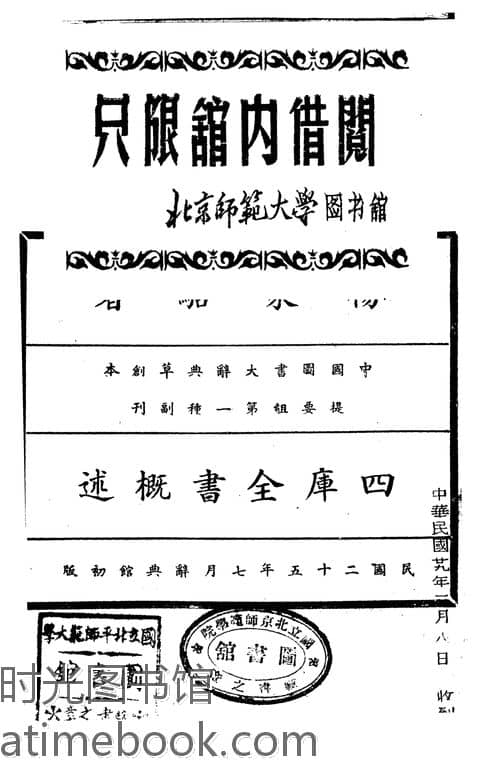 只限舘内借閱
北京師範大學図书舘
楊家駱著
中國圖書大辭典草創本
提要組第一種副刊
四庫全書概述
民國二十五年七月辭典館初版
中華民國廿九年一月八日 收到
國立北平師範大學
圖書館
國立北京師範學院
圖書舘
时光图书馆
atimebook.com